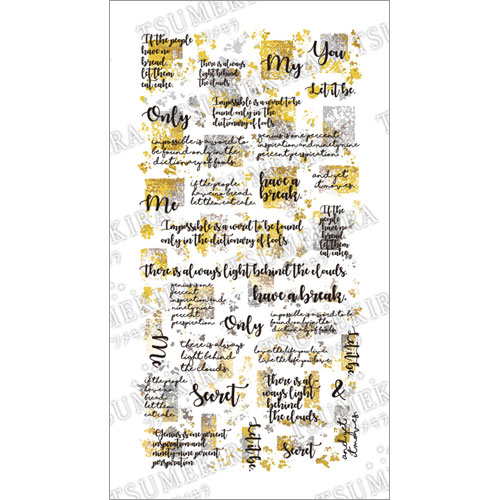 If the people
have no
bread,
let them
eat cake.
There is always
light behind
the clouds.
My
You
Let it be.
Only
Impossible is a word to be
found only in the
dictionary of fools.
impossible is a word to
be found only in the
dictionary of fools.
genius is one percent
inspiration and ninety nine
percent perspiration.
Me
if the people
have no bread,
let them eat cake.
have a
break.
and yet
it moves.
If the
people
have no
bread,
let them
eat cake.
Impossible is a word to be found
only in the dictionary of fools.
There is always light behind the clouds.
genius is one
percent
inspiration and
ninety-nine
percent
perspiration.
have a break.
Only
impossible is a word to be
found only in the
dictionary of fools.
Me
there is always
light behind
the clouds.
love the life you live.
live the life you love.
Let it be.
if the people
have no
bread,
let them
eat cake.
Secret
There is al
ways light
behind
the clouds.
&
Genius is one percent
inspiration and
ninety-nine percent
perspiration.
Let it be.
Secret
and yet
it moves.
TSUMEKIRA
ツメキラ